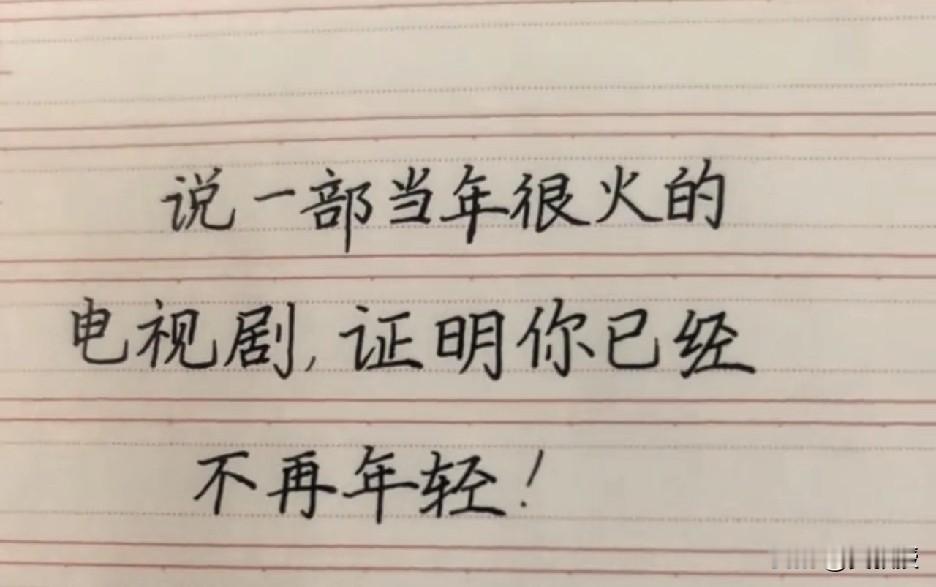 说一部当年很火的
电视剧,证明你已经
不再年轻!